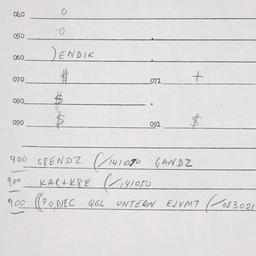 040 0
050 0
060 )ENDIK
070 $ 072 +
080 $
090 $ 092 $
900 GRENDZ (/141070 GANDZ
900 KAR+KPE (/141050
900 ((POPIEC GGL UNTERN EJVMT (/083021